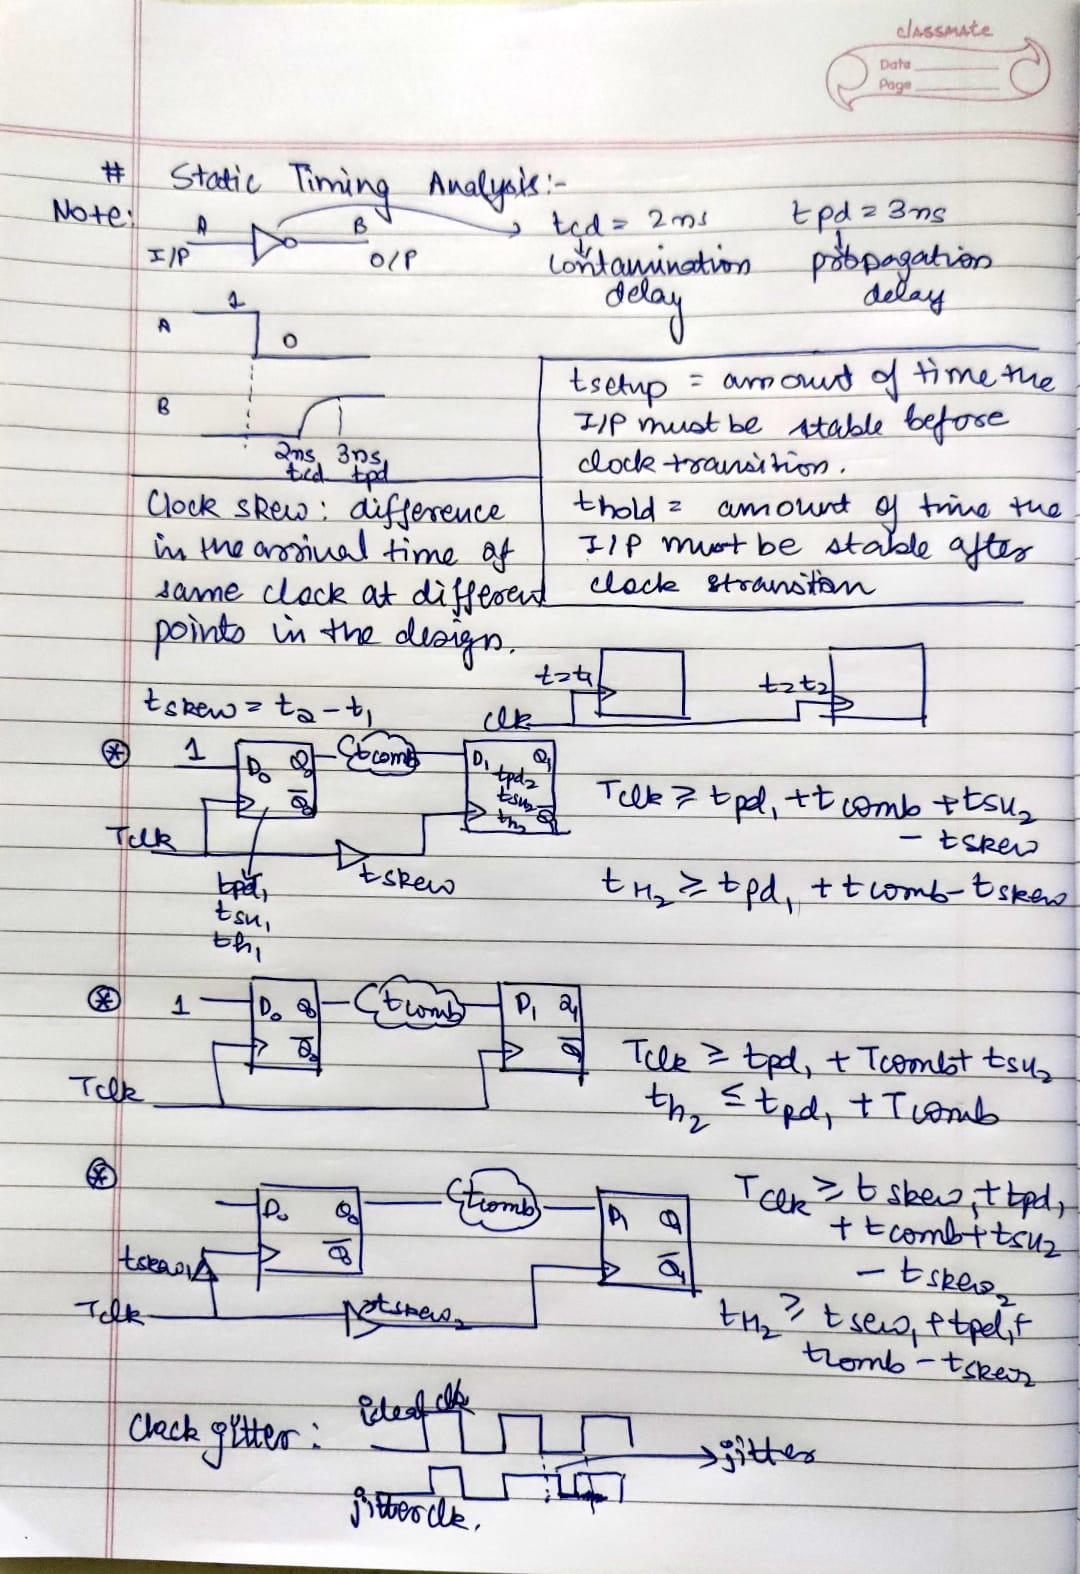 classmate
Date
Page
# Static Timing Analysis:-
Note:
A
B
I/P
O/P
tcd = 2ns
tpd = 3ns
contamination delay
propagation delay
A
1
0
B
2ns 3ns
tcd tpd
tsetup = amount of time the
I/P must be stable before
clock transition.
thold = amount of time the
I/P must be stable after
clock stransition
Clock skew: difference
in the arrival time of
same clock at different
points in the design.
tskew = t2 - t1
clk
t=t1
t=t2
⊛ 1
D0 Q0
Q̅0
tcomb
D1 Q1
tpd2
tsu2
th2
Q̅1
Tclk
tskew
tpd1
tsu1
th1
Tclk ≥ tpd1 + tcomb + tsu2
- tskew
tH2 ≥ tpd1 + tcomb - tskew
⊛ 1
D0 Q0
Q̅0
tcomb
D1 Q1
Q̅
Tclk
Tclk ≥ tpd1 + Tcomb + tsu2
th2 ≤ tpd1 + Tcomb
⊛
D0 Q0
Q̅
tcomb
D1 Q
Q̅1
tskew1
Tclk
tskew2
Tclk ≥ tskew1 + tpd1
+ tcomb + tsu2
- tskew2
tH2 ≥ tsew1 + tpd1 +
tcomb - tskew2
Clack gitter:
ideal clk
jitter
jitter clk.